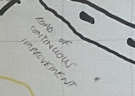 ROAD OF
CONTINUOUS
IMPROVEMENT